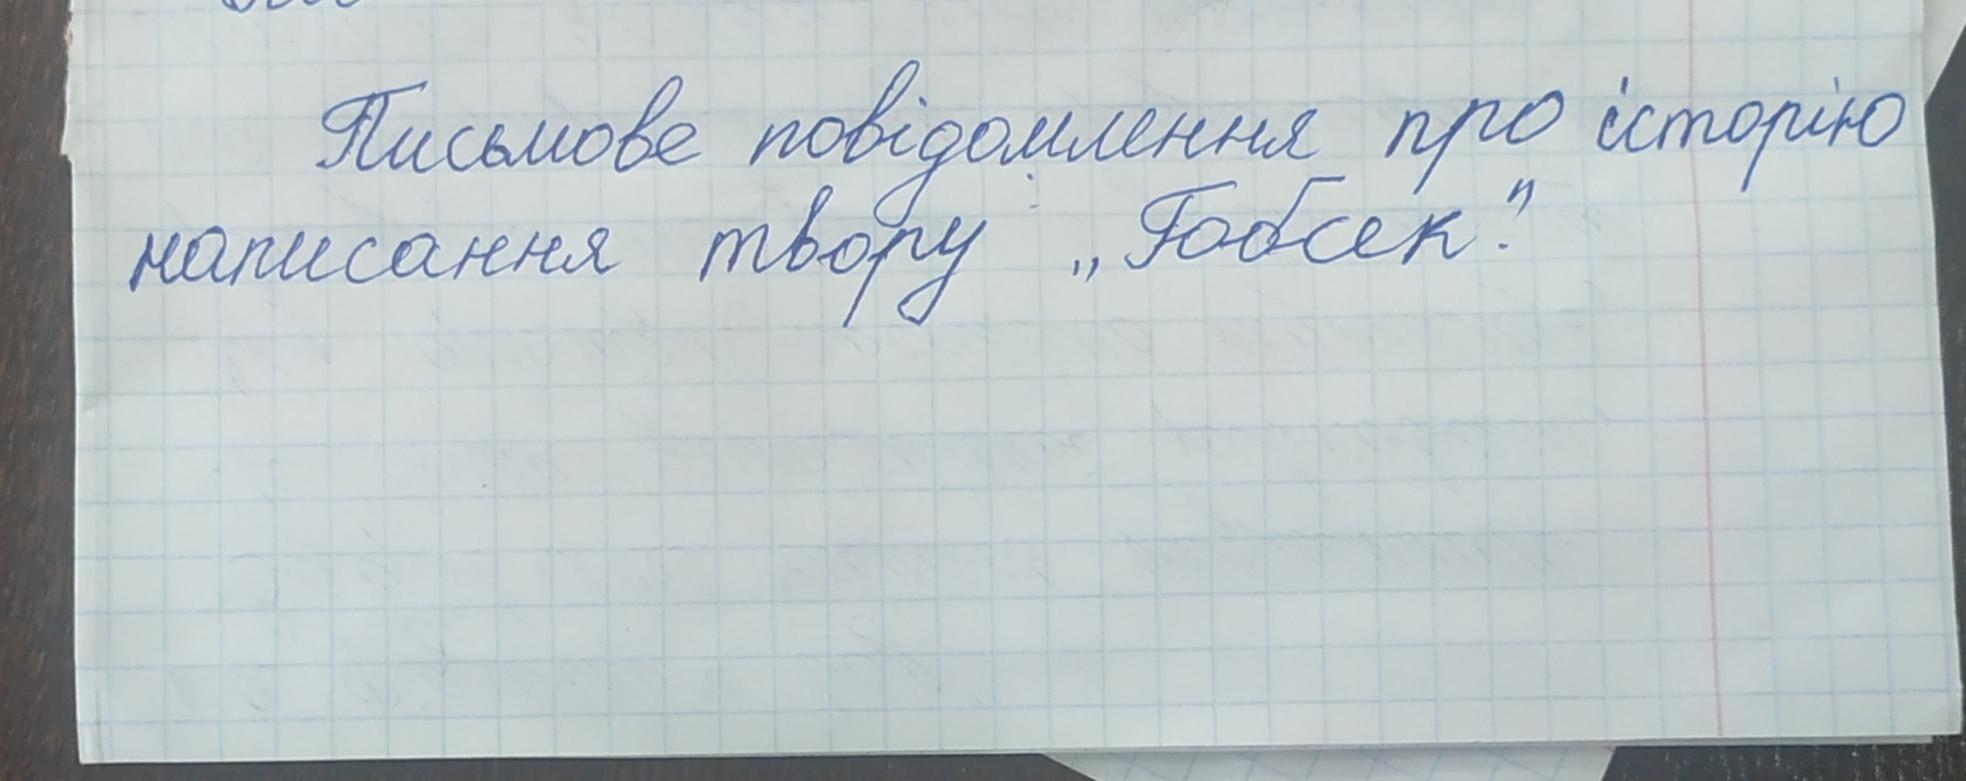 Письмове повідомлення про історію
написання твору „Гобсек."